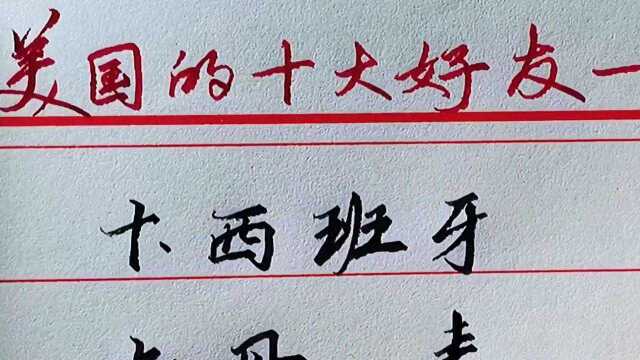 美国的十大好友一
十、西班牙